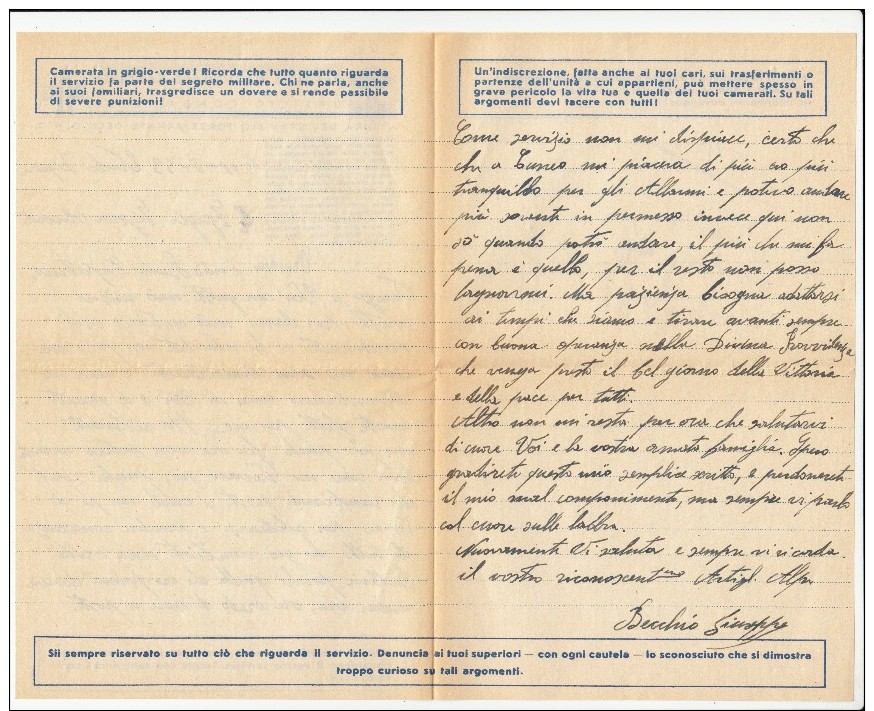 Camerata in grigio-verde! Ricorda che tutto quanto riguarda
il servizio fa parte del segreto militare. Chi ne parla, anche
ai suoi familiari, trasgredisce un dovere e si rende passibile
di severe punizioni!
Un'indiscrezione, fatta anche ai tuoi cari, sui trasferimenti o
partenze dell'unità a cui appartieni, può mettere spesso in
grave pericolo la vita tua e quella dei tuoi camerati. Su tali
argomenti devi tacere con tutti!
Come servizio non mi dispiace, certo che
che a Cuneo mi piaceva di più ero più
tranquillo per gli Allarmi e potevo andare
più sovente in permesso invece qui non
sò quando potrò andare, il più che mi fa
pena è quello, per il resto non posso
lagnarmi. Ma pazienza bisogna adattarsi
ai tempi che siamo e tirare avanti sempre
con buona speranza nella Divina Provvidenza
che venga presto il bel giorno della Vittoria
e della pace per tutti.
Altro non mi resta per ora che salutarvi
di cuore Voi e la vostra amata famiglia. Spero
gradirete questo mio semplice scritto, e perdonerete
il mio mal componimento, ma sempre vi parlo
col cuore sulle labbra.
Nuovamente Vi saluta e sempre vi ricorda
il vostro riconoscentmo Artigl. Alp.
Becchio Giuseppe
Sii sempre riservato su tutto ciò che riguarda il servizio. Denuncia ai tuoi superiori — con ogni cautela — lo sconosciuto che si dimostra
troppo curioso su tali argomenti.